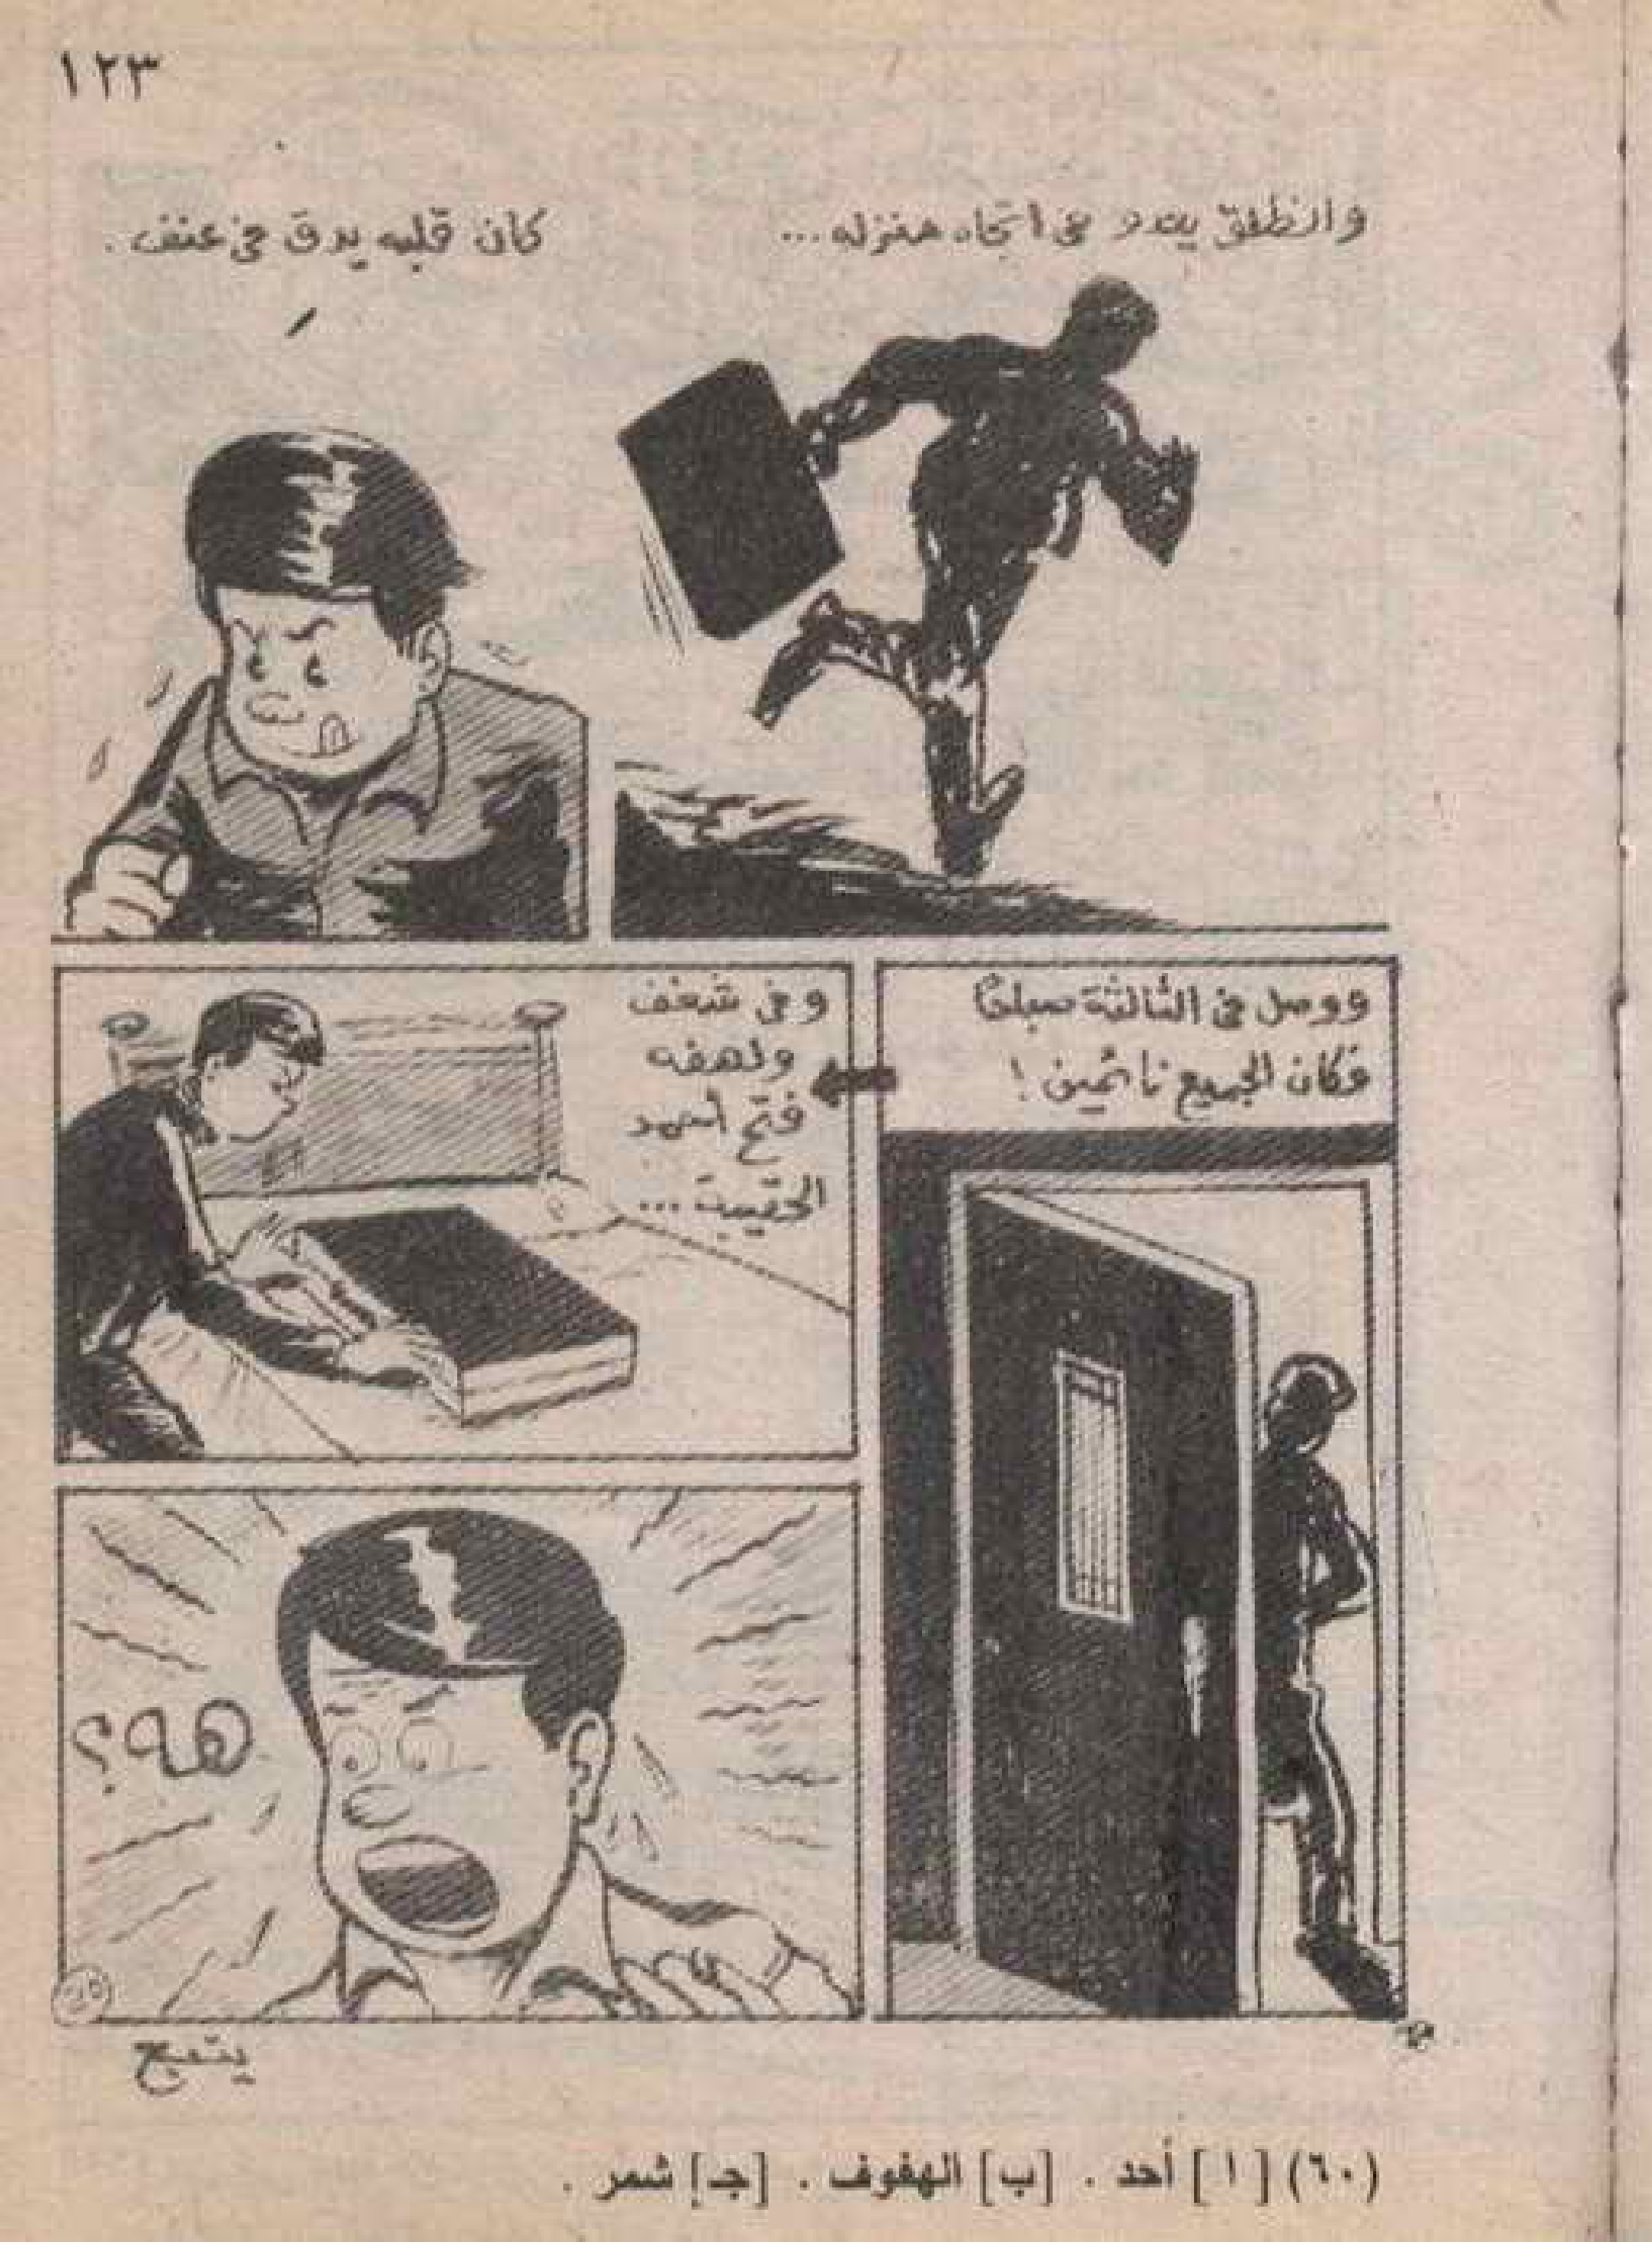 ١٢٣
وانطلق يعدو في اتجاه منزله...
كان قلبه يدق في عنف.
ووصل في الثالثة صباحًا
فكان الجميع نائمين!
وفي شغف
ولهفه
فتح
الحقيبة...
هه؟
يتبع
(٦٠) [ ا ] أحد . [ب] الهفوف . [جـ] شمر .